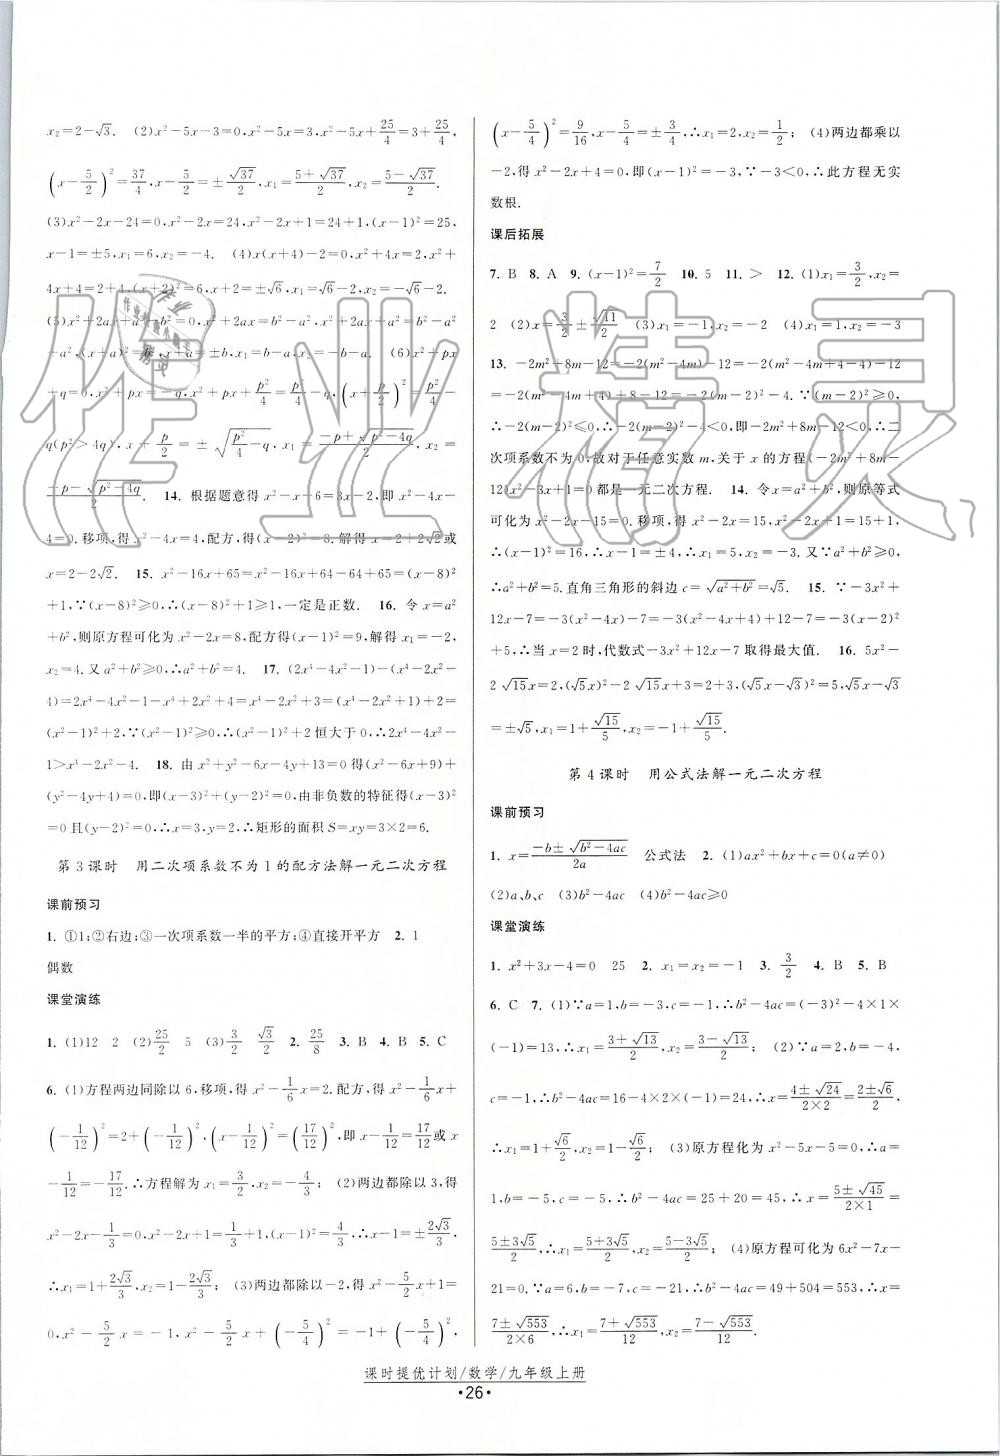 x₂=2-√3. (2)x²-5x-3=0,x²-5x=3,x²-5x+25/4=3+25/4,
(x-5/2)²=37/4,x-5/2=±√37/2,x₁=(5+√37)/2,x₂=(5-√37)/2.
(3)x²-2x-24=0,x²-2x=24,x²-2x+1=24+1,(x-1)²=25,
x-1=±5,x₁=6,x₂=-4. (4)x(x+4)-2=0,x²+4x-2=0,x²+
4x+4=2+4,(x+2)²=6,x+2=±√6,x₁=√6-2,x₂=-2-√6.
(5)x²+2ax+a²-b²=0,x²+2ax=b²-a²,x²+2ax+a²=b²-
a²+a²,(x+a)²=b²,x+a=±b,x₁=b-a,x₂=-b-a. (6)x²+px
+q=0,x²+px=-q,x²+px+p²/4=p²/4-q,(x+p/2)²=p²/4-
q(p²>4q),x+p/2=±√(p²/4-q),x₁=(-p+√(p²-4q))/2,x₂=
(-p-√(p²-4q))/2. 14. 根据题意得x²-x-6=3x-2,即x²-4x-
4=0.移项,得x²-4x=4,配方,得(x-2)²=8,解得x=2+2√2或
x=2-2√2. 15. x²-16x+65=x²-16x+64-64+65=(x-8)²
+1,∵(x-8)²≥0,∴(x-8)²+1≥1,一定是正数. 16. 令x=a²
+b²,则原方程可化为x²-2x=8,配方得(x-1)²=9,解得x₁=-2,
x₂=4.又a²+b²≥0,∴a²+b²=4. 17. (2x⁴-4x²-1)-(x⁴-2x²-
4)=2x⁴-4x²-1-x⁴+2x²+4=x⁴-2x²+3=(x⁴-2x²+1)+2=
(x²-1)²+2,∵(x²-1)²≥0,∴(x²-1)²+2恒大于0,∴2x⁴-4x²-
1>x⁴-2x²-4. 18. 由x²+y²-6x-4y+13=0得(x²-6x+9)+
(y²-4y+4)=0,即(x-3)²+(y-2)²=0,由非负数的特征得(x-3)²
=0且(y-2)²=0,∴x=3,y=2,∴矩形的面积S=xy=3×2=6.
第3课时 用二次项系数不为1的配方法解一元二次方程
课前预习
1. ①1;②右边;③一次项系数一半的平方;④直接开平方 2. 1
偶数
课堂演练
1. (1)12 2 (2)25/2 5 (3)3/2 √3/2 2. 25/8 3. B 4. B 5. C
6. (1)方程两边同除以6,移项,得x²-1/6x=2.配方,得x²-1/6x+
(-1/12)²=2+(-1/12)²,(x-1/12)²=(17/12)²,即x-1/12=17/12或x
-1/12=-17/12.∴方程解为x₁=3/2,x₂=-4/3; (2)两边都除以3,得
x²-2x-1/3=0,x²-2x+1=1/3+1,(x-1)²=4/3,∴x-1=±2√3/3,
∴x₁=1+2√3/3,x₂=1-2√3/3; (3)两边都除以-2,得x²-5/2x+1=
0,x²-5/2x=-1,x²-5/2x+(-5/4)²=-1+(-5/4)²,
(x-5/4)²=9/16,x-5/4=±3/4,∴x₁=2,x₂=1/2; (4)两边都乘以
-2,得x²-2x+4=0,即(x-1)²=-3,∵-3<0,∴此方程无实
数根.
课后拓展
7. B 8. A 9. (x-1)²=7/2 10. 5 11. > 12. (1)x₁=3/2,x₂=
2 (2)x=3/2±√11/2 (3)x₁=x₂=-1 (4)x₁=1,x₂=-3
13. -2m²+8m-12=-2(m²-4m)-12=-2(m²-4m+4-4)-12
=-2(m²-4m+4)+8-12=-2(m-2)²-4.∵(m-2)²≥0,
∴-2(m-2)²≤0,∴-2(m-2)²-4<0,即-2m²+8m-12<0,∴二
次项系数不为0,故对于任意实数m,关于x的方程(-2m²+8m-
12)x²-3x+1=0都是一元二次方程. 14. 令x=a²+b²,则原等式
可化为x²-2x-15=0.移项,得x²-2x=15,∴x²-2x+1=15+1,
∴(x-1)²=16,∴x-1=±4,∴x₁=5,x₂=-3.又∵a²+b²≥0,
∴a²+b²=5.直角三角形的斜边c=√(a²+b²)=√5. 15. ∵-3x²+
12x-7=-3(x²-4x)-7=-3(x²-4x+4)+12-7=-3(x-2)²
+5,∴当x=2时,代数式-3x²+12x-7取得最大值. 16. 5x²-
2√15x=2,(√5x)²-2√15x+3=2+3,(√5x-√3)²=5,√5x-√3
=±√5,x₁=1+√15/5,x₂=-1+√15/5.
第4课时 用公式法解一元二次方程
课前预习
1. x=(-b±√(b²-4ac))/2a 公式法 2. (1)ax²+bx+c=0(a≠0)
(2)a、b、c (3)b²-4ac (4)b²-4ac≥0
课堂演练
1. x²+3x-4=0 25 2. x₁=x₂=-1 3. 3/2 4. B 5. B
6. C 7. (1)∵a=1,b=-3,c=-1,∴b²-4ac=(-3)²-4×1×
(-1)=13,∴x₁=(3+√13)/2,x₂=(3-√13)/2; (2)∵a=2,b=-4,
c=-1,∴b²-4ac=16-4×2×(-1)=24,∴x=(4±√24)/(2×2)=(2±√6)/2,
∴x₁=1+√6/2,x₂=1-√6/2; (3)原方程化为x²-5x-5=0,∴a=
1,b=-5,c=-5,∴b²-4ac=25+20=45,∴x=(5±√45)/(2×1)=
(5±3√5)/2,∴x₁=(5+3√5)/2,x₂=(5-3√5)/2; (4)原方程可化为6x²-7x-
21=0.∵a=6,b=-7,c=-21,∴b²-4ac=49+504=553,∴x=
(7±√553)/(2×6),∴x₁=(7+√553)/12,x₂=(7-√553)/12.
课时提优计划/数学/九年级上册
·26·
作业精灵